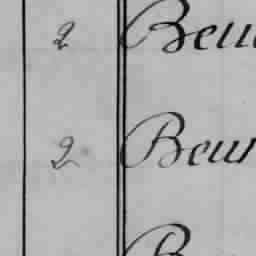 2 Beu
2 Beur
B